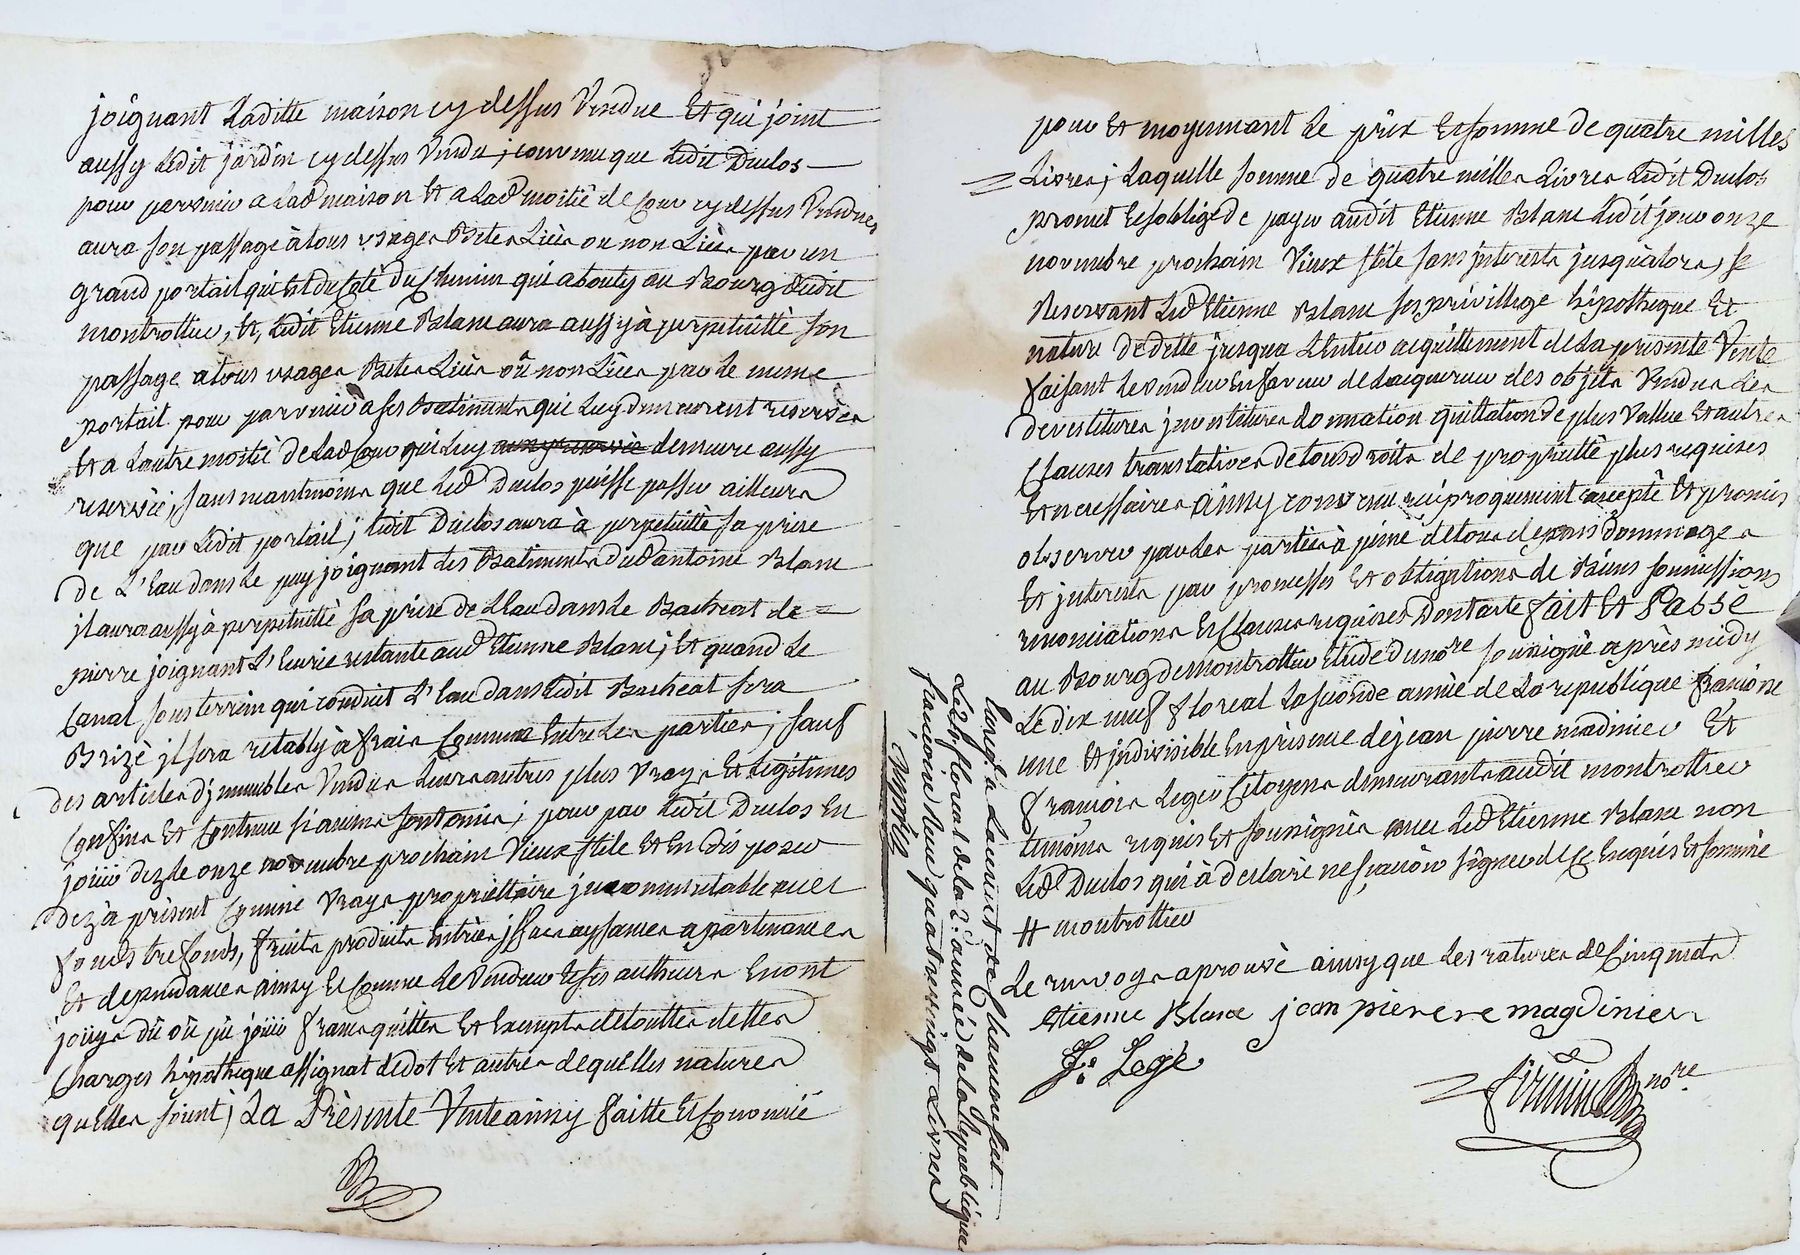 joignant Laditte maison cy dessus Vendue Et qui joint
aussy Ledit jardin cy dessus Vendu ; convenu que Ledit Duclos
pour parvenir a Lad maison Et a Lad moitié de Cour cy dessus Vendues
aura son passage à tous usages Betes Liées ou non Liées par un
grand portail qui Est du Coté du Chemin qui abouty au Bourg dudit
montrottier, Et, Ledit Etienne Blanc aura aussy à perpetuitté son
passage a tous usages Betes Liées où non Liées par le meme
portail pour parvenir à ses Batiments qui Luy demeurent reservés
Et a Lautre moitié de Lad Cour qui Luy demeure aussy
reservée, sans neantmoins que Led Duclos puisse passer ailleurs
que par Ledit portail ; Ledit Duclos aura à perpetuitté sa prise
de L'Eau dans Le puy joignant les Batiments dud antoine Blanc
jl aura aussy à perpetuitté sa prise de L'Eau dans Le Bacheat de
pierre joignant L'Ecurie restante aud Etienne Blanc ; Et quand Le
Canal sousterrein qui conduit L'Eau dans Ledit Bacheat sera
Brizé jl sera retably à frais Communs Entre Les parties ; sauf
des articles d'jmmeubles Vendus Leurs autres plus Vrays Et Legitimes
Confins Et Contenue si aucuns sont omis ; pour par Ledit Duclos En
jouir dez le onze novembre prochain Vieux stile Et En disposer
dez à present Comme Vrays propriettaire jncommutable avec
fonds trefonds, fruits produits Entrées jssues aysances apartenances
Et dependances ainsy Et Comme Le Vendeur Et ses autheurs En ont
jouys dû où pû jouir francs quittes Et Exempts de touttes dettes
Charges hipotheque assignat de dot Et autres de quelles natures
quelles soient ; La Présente Vente ainsy faitte Et Convenüe
pour Et moyennant Le prix Et somme de quatre milles
Livres ; Laquelle somme de quatre milles Livres Ledit Duclos
promet Et soblige de payer audit Etienne Blanc Ledit jour onze
novembre prochain Vieux stile sans jnterests jusquàlors, se
Reservant Led Etienne Blanc ses privillege hipotheque Et
nature de dette jusqua LEntier acquittement de La presente Vente
faisant Le vendeur En faveur de Lacquereur des objets Vendus Les
devestitures jnvestitures donnation quittation de plus Vallue Et autres
Clauses translatives de tous droits de propriétté plus requises
Et necessaires ainsy convenu reciproquement accepté Et promis
observer par Les parties à peine de tous depens dommages
Et jnterests par promesses Et obligations de Biens soumissions
renonciations Et Clauses requises Dont acte fait Et Passé
au Bourg de montrottier Etude du nore soussigné après midy
Le dix neuf floreal La seconde année de La republique francoise
une Et jndivisible En presence de jean pierre madinier Et
francois Leger Citoyens demeurants audit montrottier
temoins requis Et soussignés avec Led Etienne Blanc non
Led Duclos qui à declaré ne scavoir signer de Ce Enquis Et sommé
# montrottier
Le renvoys aprouvé ainsy que Les ratures de Cinq mots
Etienne Blanc jean pierere magdinier
F: Legé
nore
Enregé a Lacenas de Chamousset
Le 29 floreal de La 2e année de La Republique
francoise Reçu quatrevingt Livres